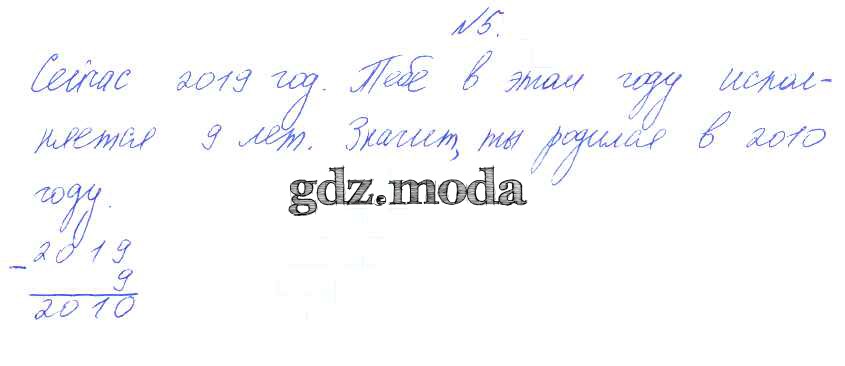 №5.
Сейчас 2019 год. Тебе в этом году испол-
няется 9 лет. Значит, ты родился в 2010
году.
gdz.moda
- 2019
9
2010